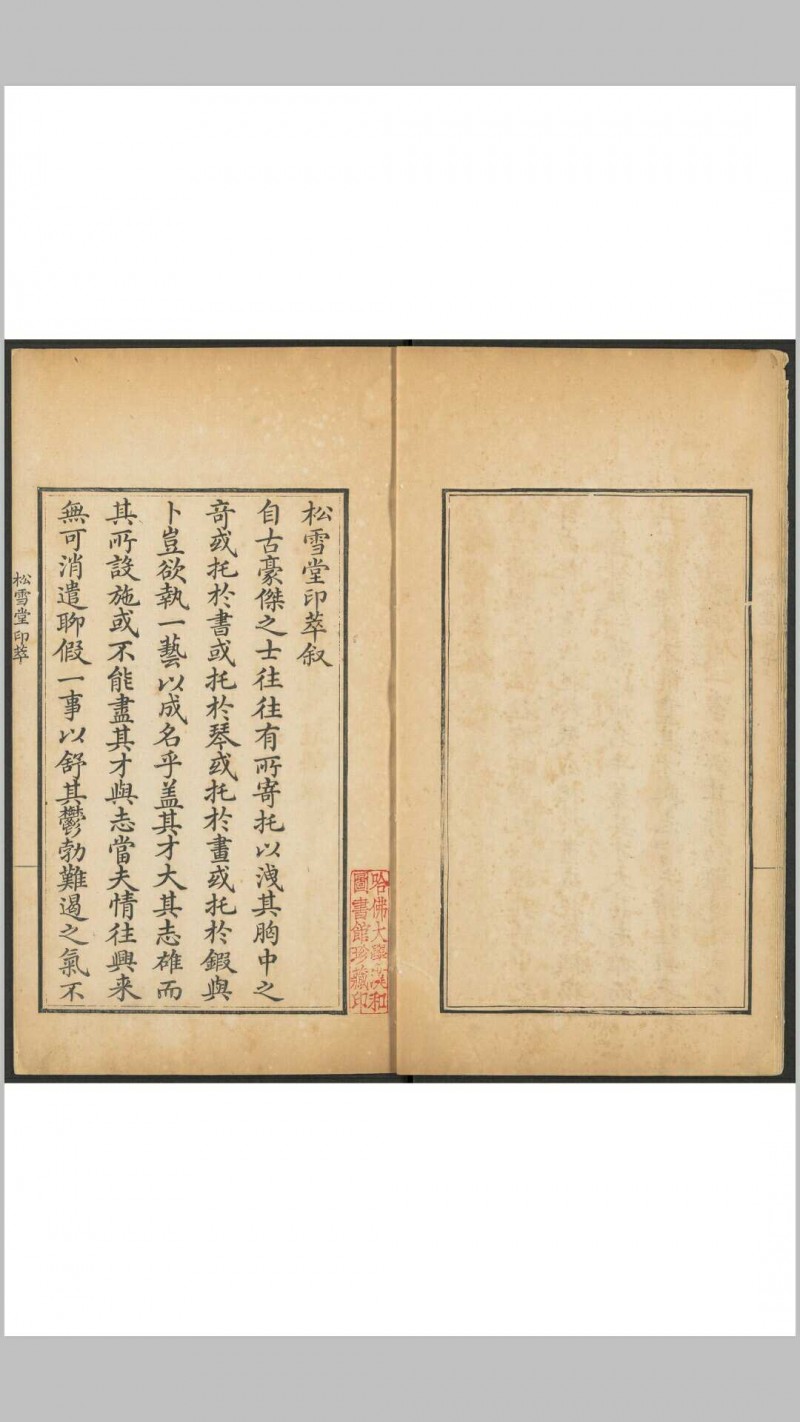 松雪堂印萃叙
自古豪傑之士往往有所寄托以洩其胸中之
竒或托於書或托於琴或托於畫或托於鍛與
卜豈欲執一藝以成名乎盖其才大其志雄而
其所設施或不能盡其才與志當夫情往興来
無可消遣聊假一事以舒其鬱勃難遏之氣不
松雪堂印萃
哈佛大學漢和
圖書館珍藏印